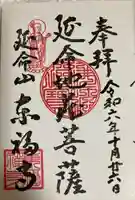 奉拝
令和六年十月廿六日
延命地蔵菩薩
延命山
東福寺